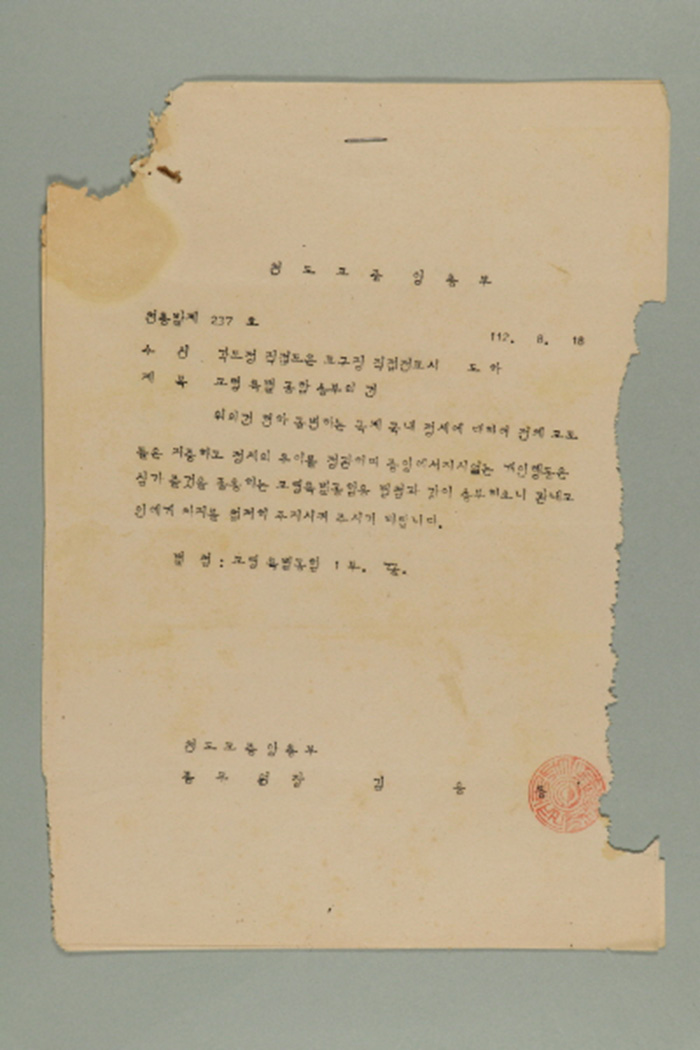 천 도 교 중 앙 총 부
천총발제 237 호
112. 8. 18
수 신 각도정 직접도훈 교구장 직접전교사 도 하
제 목 교령 특별 공함 송부의 건
위의건 국제 국내 정세에 대하여 전체 교도
들은 지중하고 정세의 추이를 정관하며 중앙에서지시없는 개인행동은
삼가 줄것을 교령특별공함을 별첨과 같이 송부하오니 관내교
인에게 취지를 철저히 주지시켜 주시기 바랍니다.
별 첨 : 교령 특별공함 1 부. 끝.
천도교중앙총부
종 무 원 장 김